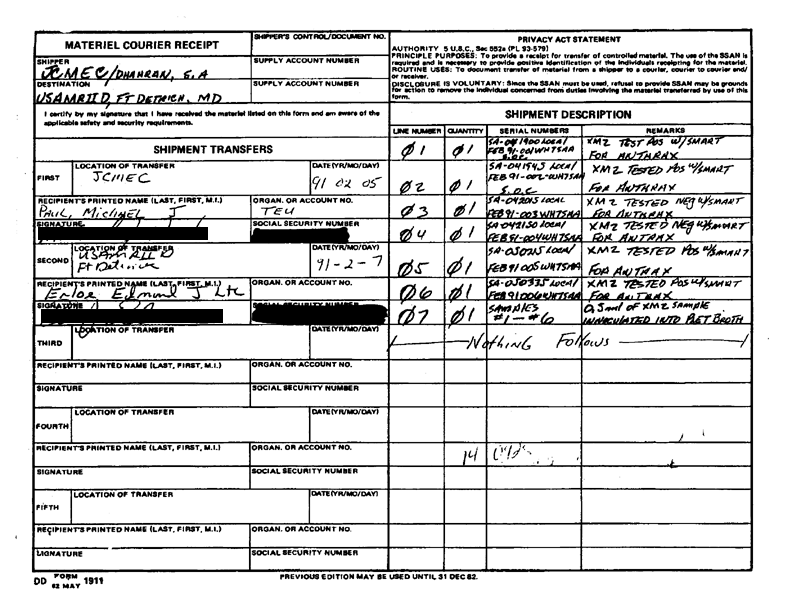 MATERIEL COURIER RECEIPT
SHIPPER'S CONTROL/DOCUMENT NO.
SHIPPER
JCMEC/DHAHRAN, S.A
SUPPLY ACCOUNT NUMBER
DESTINATION
USAMRIID, FT DETRICH, MD
SUPPLY ACCOUNT NUMBER
I certify by my signature that I have received the material listed on this form and am aware of the
applicable safety and security requirements.
PRIVACY ACT STATEMENT
AUTHORITY 5 U.S.C., Sec 552a (PL 93-579)
PRINCIPLE PURPOSES: To provide a receipt for transfer of controlled material. The use of the SSAN is
required and is necessary to provide positive identification of the individuals receipting for the material.
ROUTINE USES: To document transfer of material from a shipper to a courier, courier to courier and/
or receiver.
DISCLOSURE IS VOLUNTARY: Since the SSAN must be used, refusal to provide SSAN may be grounds
for action to remove the individual concerned from duties involving the material transferred by use of this
form.
SHIPMENT TRANSFERS
FIRST
LOCATION OF TRANSFER
JCMEC
DATE(YR/MO/DAY)
91 02 05
RECIPIENT'S PRINTED NAME (LAST, FIRST, M.I.)
PAUL, Michael J
ORGAN. OR ACCOUNT NO.
TEU
SIGNATURE
SOCIAL SECURITY NUMBER
SECOND
LOCATION OF TRANSFER
USAMRIID
Ft Detrick
DATE(YR/MO/DAY)
91-2-7
RECIPIENT'S PRINTED NAME (LAST, FIRST, M.I.)
Edmund J Ltc
ORGAN. OR ACCOUNT NO.
SIGNATURE
SOCIAL SECURITY NUMBER
THIRD
LOCATION OF TRANSFER
DATE(YR/MO/DAY)
RECIPIENT'S PRINTED NAME (LAST, FIRST, M.I.)
ORGAN. OR ACCOUNT NO.
SIGNATURE
SOCIAL SECURITY NUMBER
FOURTH
LOCATION OF TRANSFER
DATE(YR/MO/DAY)
RECIPIENT'S PRINTED NAME (LAST, FIRST, M.I.)
ORGAN. OR ACCOUNT NO.
SIGNATURE
SOCIAL SECURITY NUMBER
FIFTH
LOCATION OF TRANSFER
DATE(YR/MO/DAY)
RECIPIENT'S PRINTED NAME (LAST, FIRST, M.I.)
ORGAN. OR ACCOUNT NO.
SIGNATURE
SOCIAL SECURITY NUMBER
SHIPMENT DESCRIPTION
LINE NUMBER QUANTITY SERIAL NUMBERS REMARKS
01 01 SA-041900 LOCAL XM2 TEST POS W/SMART
FEB 91-001WHTSAA
S.O.C. FOR ANTHRAX
02 01 SA-041945 LOCAL XM2 TESTED POS W/SMART
FEB 91-002-WHTSAA
S.O.C FOR ANTHRAX
03 01 SA-042015 LOCAL XM2 TESTED NEG W/SMART
FEB 91-003WHTSAA FOR ANTHRAX
04 01 SA-042130 LOCAL XM2 TESTED NEG W/SMART
FEB 91-004WHTSAA FOR ANTHRAX
05 01 SA-050215 LOCAL XM2 TESTED POS W/SMART
FEB 91 005WHTSAA FOR ANTRAX
06 01 SA-050335 LOCAL XM2 TESTED POS W/SMART
FEB 91 006WHTSAA FOR ANTRAX
07 01 SAMPLES 0.5ml OF XM2 SAMPLE
#1 - #6 INNACULATED INTO BROTH
Nothing Follows
14
DD FORM 1911
82 MAY
PREVIOUS EDITION MAY BE USED UNTIL 31 DEC 82.